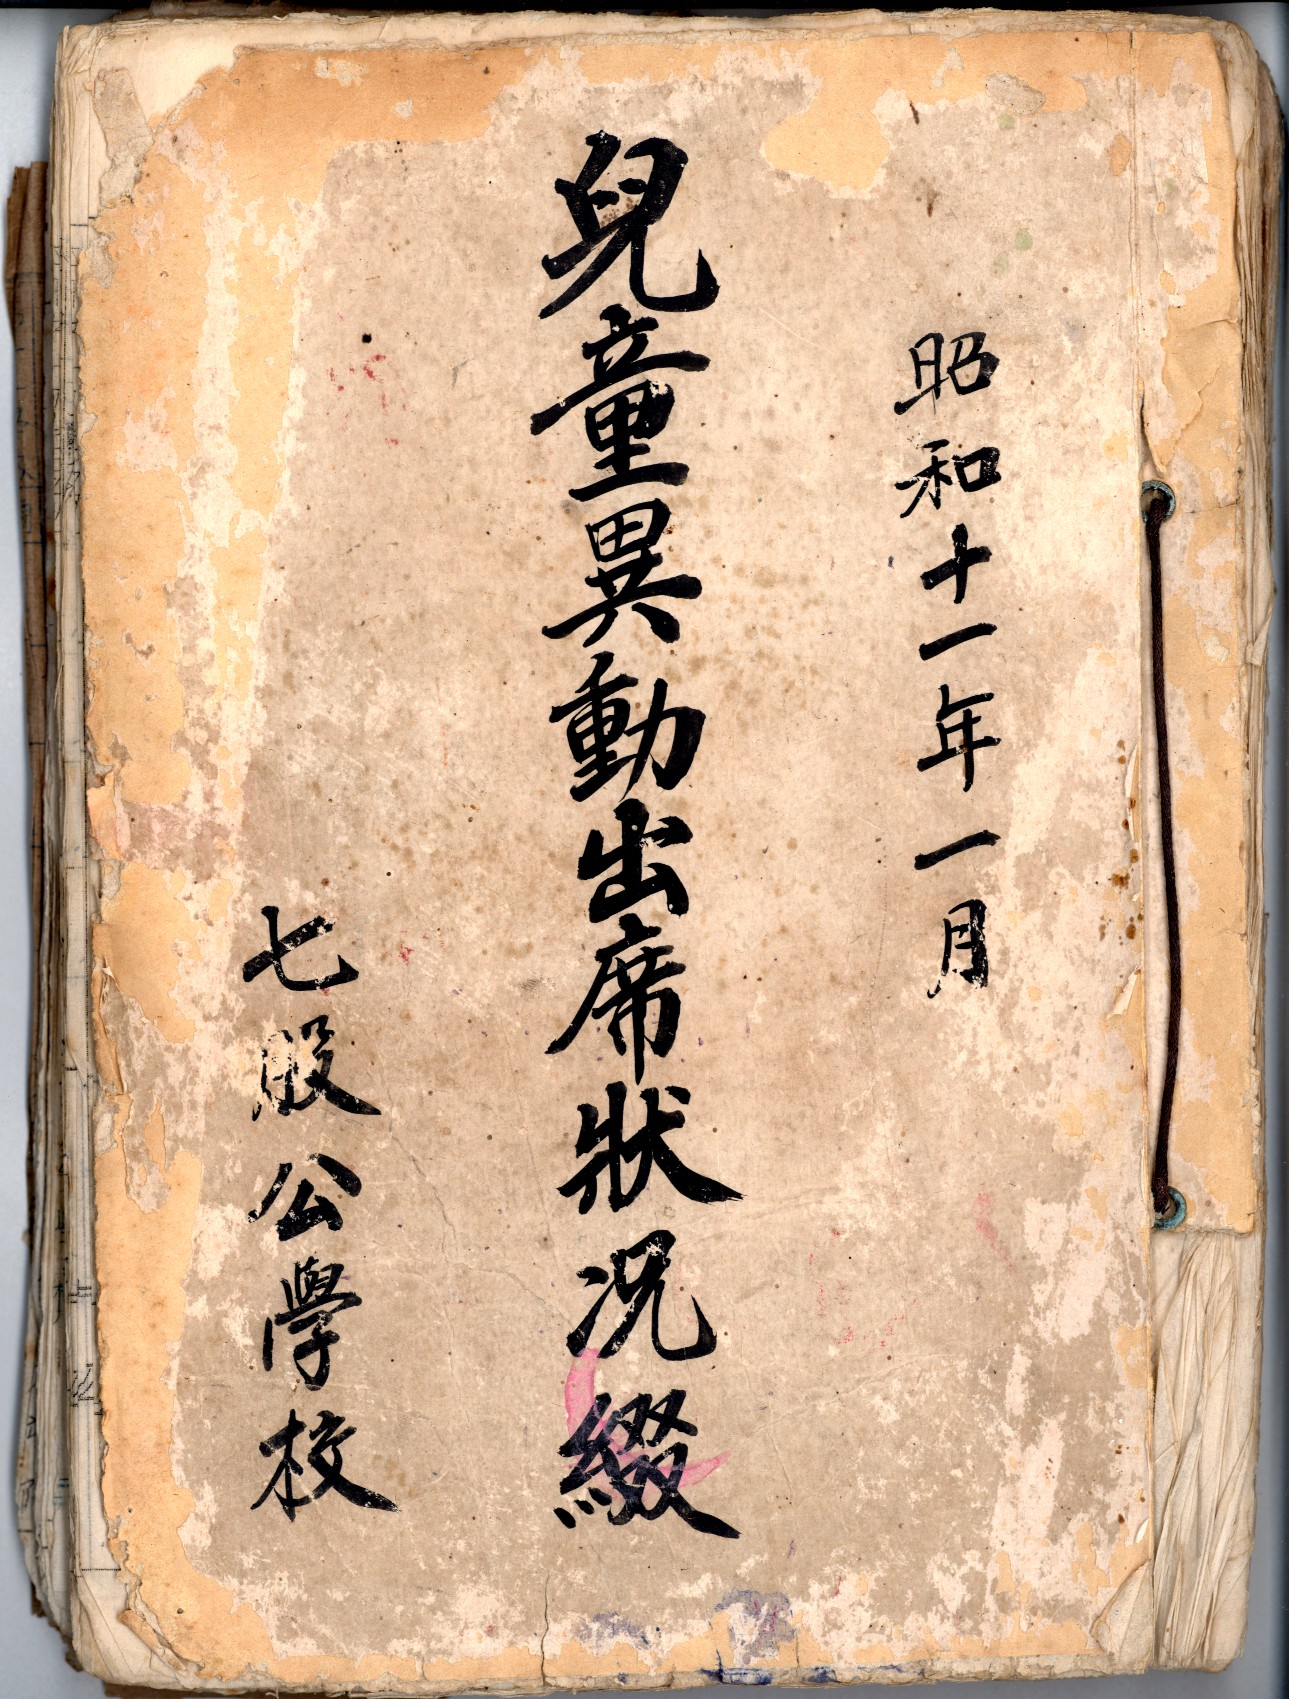 昭和十一年一月
兒童異動出席狀况綴
七股公學校